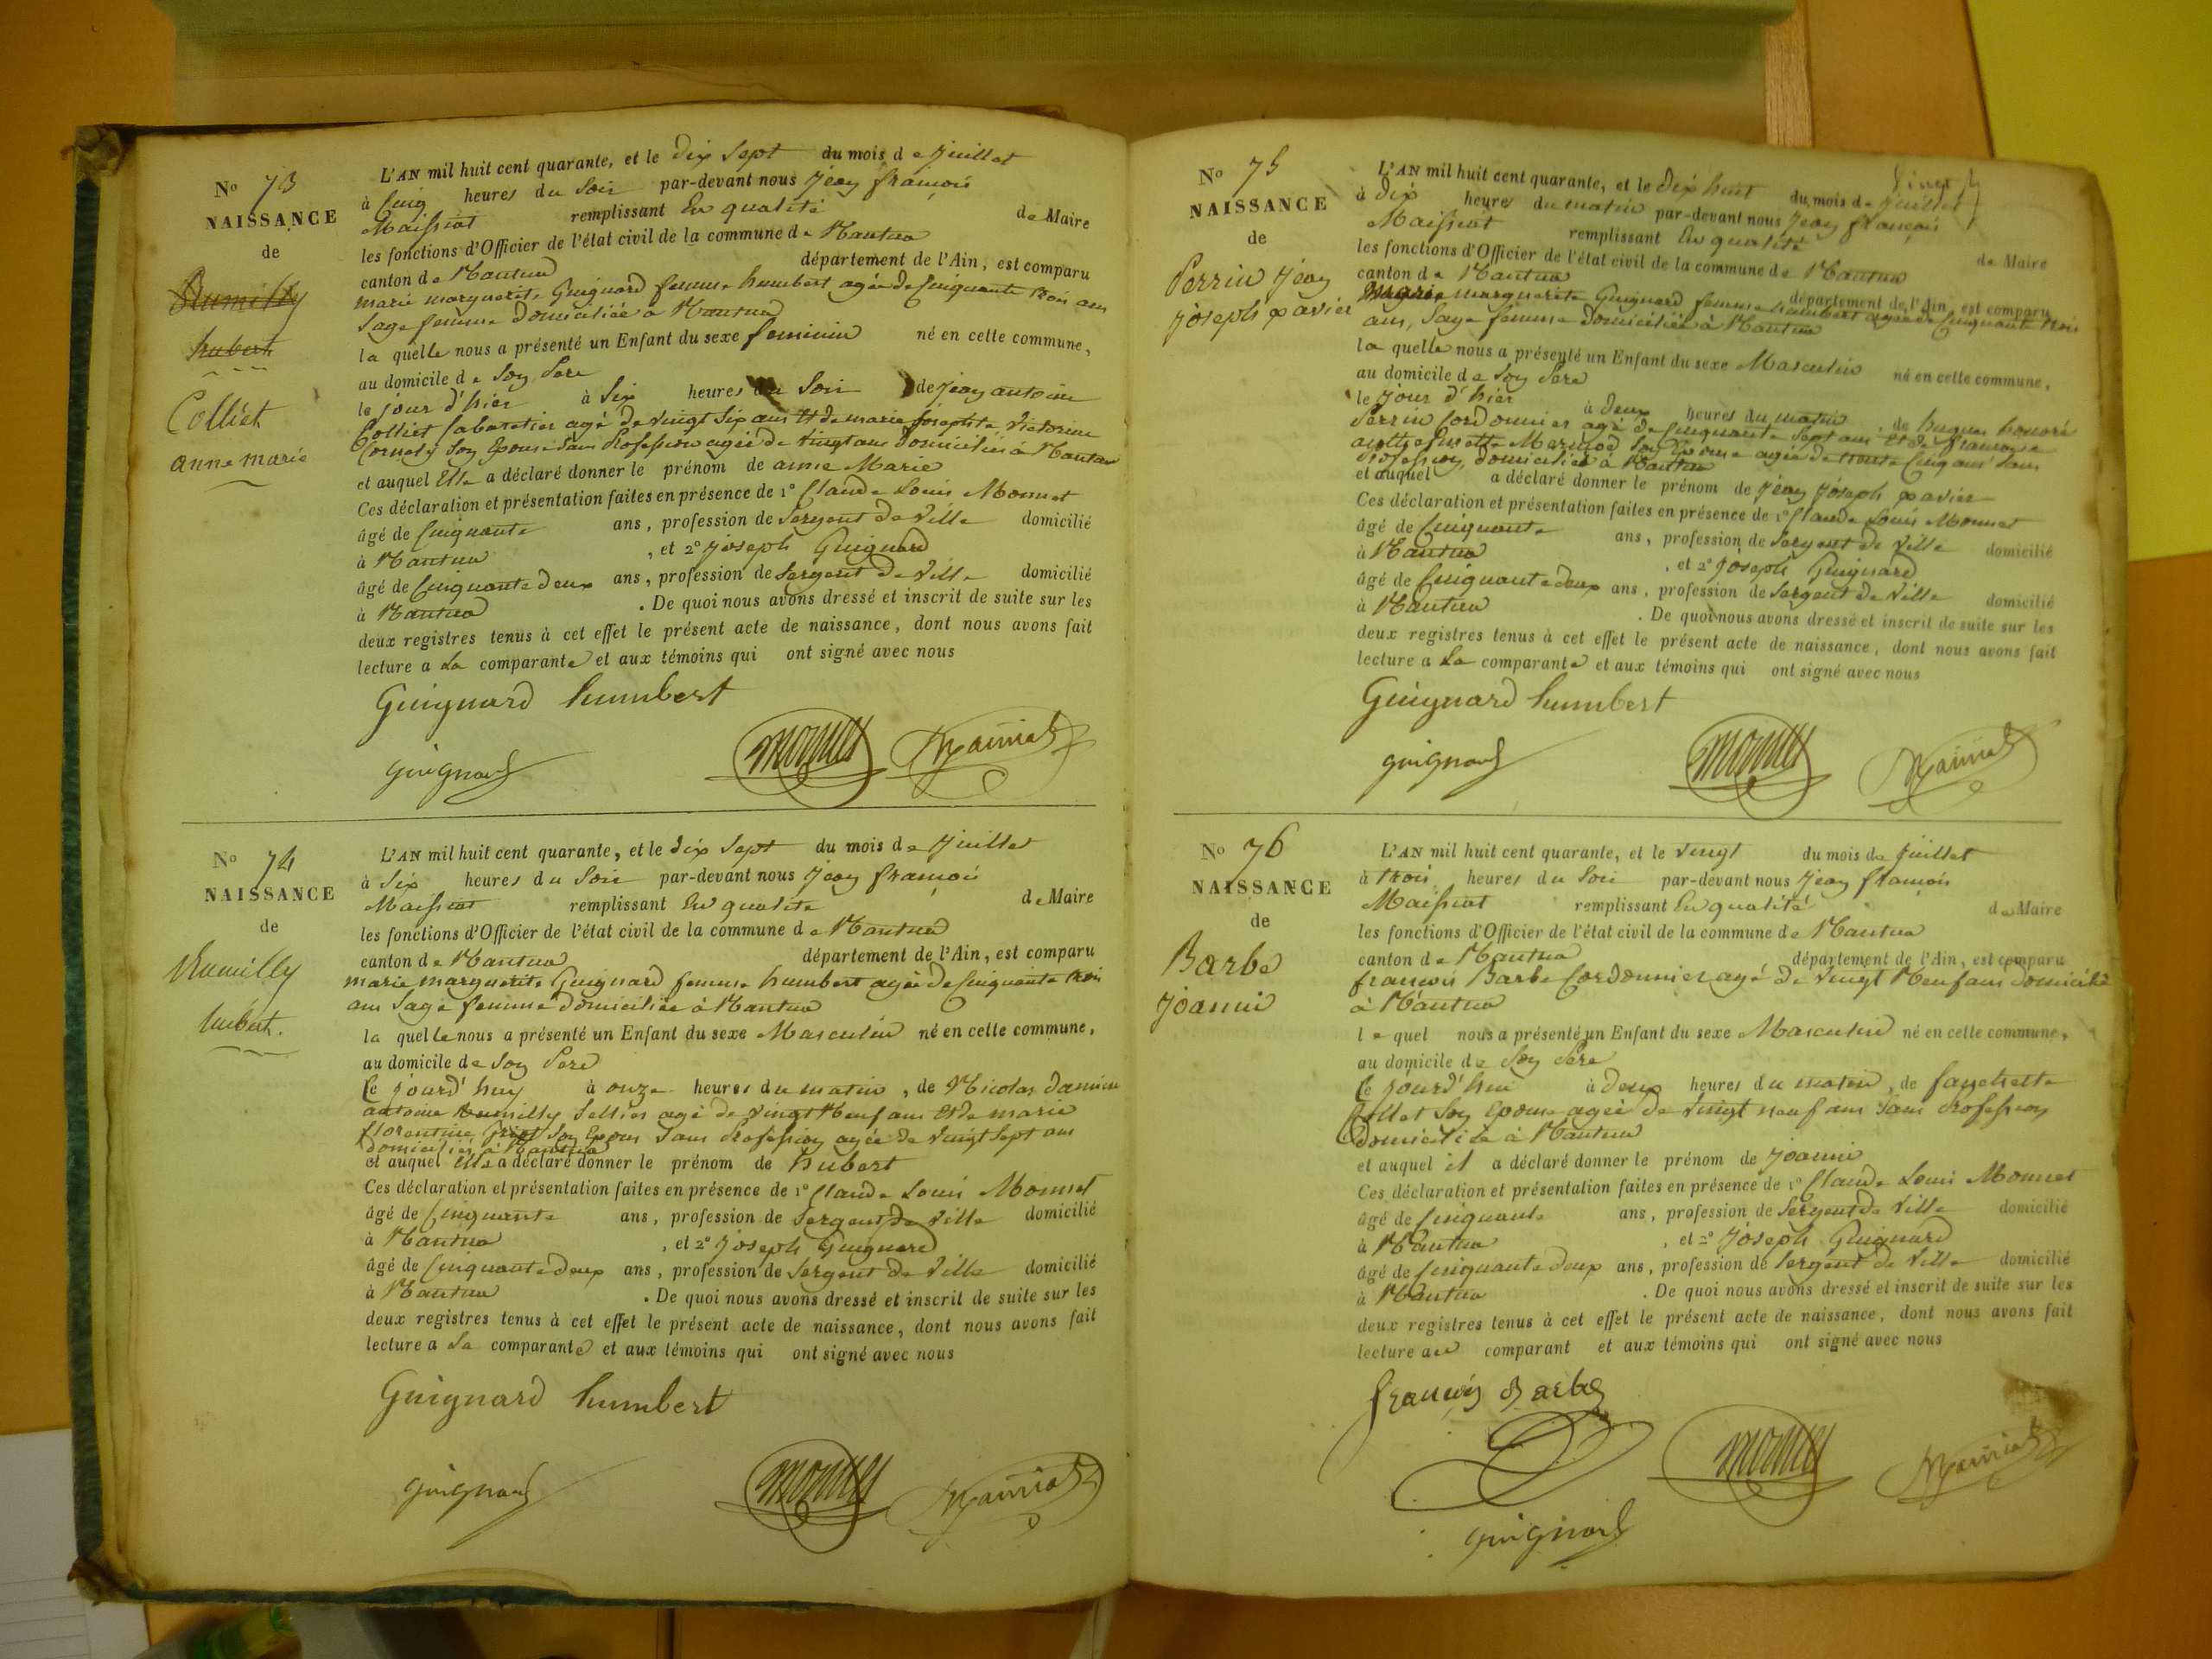 N° 73
NAISSANCE
de
Rumilly
hubert
Colliet
anne marie
L'AN mil huit cent quarante, et le dix sept du mois de juillet
à cinq heures du soir par-devant nous jean françois
Maissiat remplissant en qualité de Maire
les fonctions d'Officier de l'état civil de la commune de Nantua
canton de Nantua département de l'Ain, est comparu
marie marguerite Guignard femme humbert agée de cinquante trois ans
sage femme domiciliée à Nantua
la quelle nous a présenté un Enfant du sexe feminin né en cette commune,
au domicile de son Pere
le jour d'hier à six heures du soir de jean antoine
Colliet sabaretier agé de vingt six ans et de marie josephte victorine
Cornely son épouse sans Profession agée de vingt ans domiciliés à Nantua
et auquel Elle a déclaré donner le prénom de anne Marie
Ces déclaration et présentation faites en présence de 1° Claude Louis Monnet
âgé de cinquante ans, profession de sergent de ville domicilié
à Nantua , et 2° joseph Guignard
âgé de cinquante deux ans, profession de sergent de ville domicilié
à Nantua . De quoi nous avons dressé et inscrit de suite sur les
deux registres tenus à cet effet le présent acte de naissance, dont nous avons fait
lecture a la comparante et aux témoins qui ont signé avec nous
Guignard humbert
guignard monnet Maissiat
N° 74
NAISSANCE
de
Rumilly
hubert.
L'AN mil huit cent quarante, et le dix sept du mois de juillet
à six heures du soir par-devant nous jean françois
Maissiat remplissant en qualité de Maire
les fonctions d'Officier de l'état civil de la commune de Nantua
canton de Nantua département de l'Ain, est comparu
marie marguerite Guignard femme humbert agée de cinquante trois
ans sage femme domiciliée à Nantua
la quelle nous a présenté un Enfant du sexe Masculin né en cette commune,
au domicile de son Pere
le jourd'huy à onze heures du matin, de Nicolas damien
antoine Rumilly sellier agé de vingt Neuf ans et de marie
florentine son Epouse sans Profession agée de vingt sept ans
domiciliés à Nantua
et auquel Elle a déclaré donner le prénom de hubert
Ces déclaration et présentation faites en présence de 1° Claude Louis Monnet
âgé de cinquante ans, profession de sergent de ville domicilié
à Nantua , et 2° joseph Guignard
âgé de cinquante deux ans, profession de sergent de ville domicilié
à Nantua . De quoi nous avons dressé et inscrit de suite sur les
deux registres tenus à cet effet le présent acte de naissance, dont nous avons fait
lecture a la comparante et aux témoins qui ont signé avec nous
Guignard humbert
guignard monnet Maissiat
N° 75
NAISSANCE
de
Perrin jean
joseph xavier
L'AN mil huit cent quarante, et le dix huit du mois de juillet
à dix heures du matin par-devant nous jean françois
Maissiat remplissant en qualité de Maire
les fonctions d'Officier de l'état civil de la commune de Nantua
canton de Nantua département de l'Ain, est comparu
marie marguerite Guignard femme humbert agée de cinquante trois
ans, sage femme domiciliée à Nantua
la quelle nous a présenté un Enfant du sexe Masculin né en cette commune,
au domicile de son Pere
le jour d'hier à deux heures du matin, de hugues honoré
Perrin cordonnier agé de cinquante sept ans et de françoise
Marmod son Epouse agée de trente cinq ans sans
Profession, domiciliés à Nantua
et auquel a déclaré donner le prénom de jean joseph xavier
Ces déclaration et présentation faites en présence de 1° Claude Louis Monnet
âgé de cinquante ans, profession de sergent de ville domicilié
à Nantua , et 2° joseph Guignard
âgé de cinquante deux ans, profession de sergent de ville domicilié
à Nantua . De quoi nous avons dressé et inscrit de suite sur les
deux registres tenus à cet effet le présent acte de naissance, dont nous avons fait
lecture a la comparante et aux témoins qui ont signé avec nous
Guignard humbert
guignard monnet Maissiat
N° 76
NAISSANCE
de
Barbe
joanni
L'AN mil huit cent quarante, et le vingt du mois de juillet
à trois heures du soir par-devant nous jean françois
Maissiat remplissant en qualité de Maire
les fonctions d'Officier de l'état civil de la commune de Nantua
canton de Nantua département de l'Ain, est comparu
françois Barbe cordonnier agé de vingt Neuf ans domicilié
à Nantua
le quel nous a présenté un Enfant du sexe Masculin né en cette commune,
au domicile de son Pere
le jourd'hui à deux heures du matin, de fanchette
Collet son épouse agée de vingt neuf ans sans Profession
domiciliée à Nantua
et auquel il a déclaré donner le prénom de joanni
Ces déclaration et présentation faites en présence de 1° Claude Louis Monnet
âgé de cinquante ans, profession de sergent de ville domicilié
à Nantua , et 2° joseph Guignard
âgé de cinquante deux ans, profession de sergent de ville domicilié
à Nantua . De quoi nous avons dressé et inscrit de suite sur les
deux registres tenus à cet effet le présent acte de naissance, dont nous avons fait
lecture au comparant et aux témoins qui ont signé avec nous
françois Barbe
monnet Maissiat
guignard